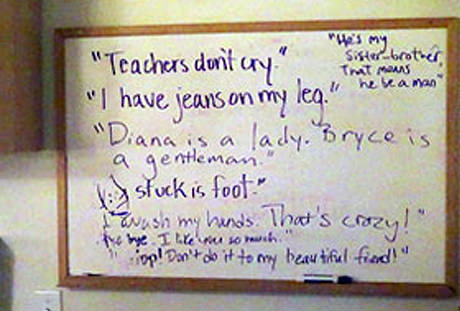 "Teachers don't cry."
"I have jeans on my leg."
"Diana is a lady. Bryce is
a gentleman."
stuck is foot."
I wash my hands. That's crazy!"
bye bye. I like you so much."
Don't do it to my beautiful friend!"
"He's my
sister-brother,
That means
he be a man"